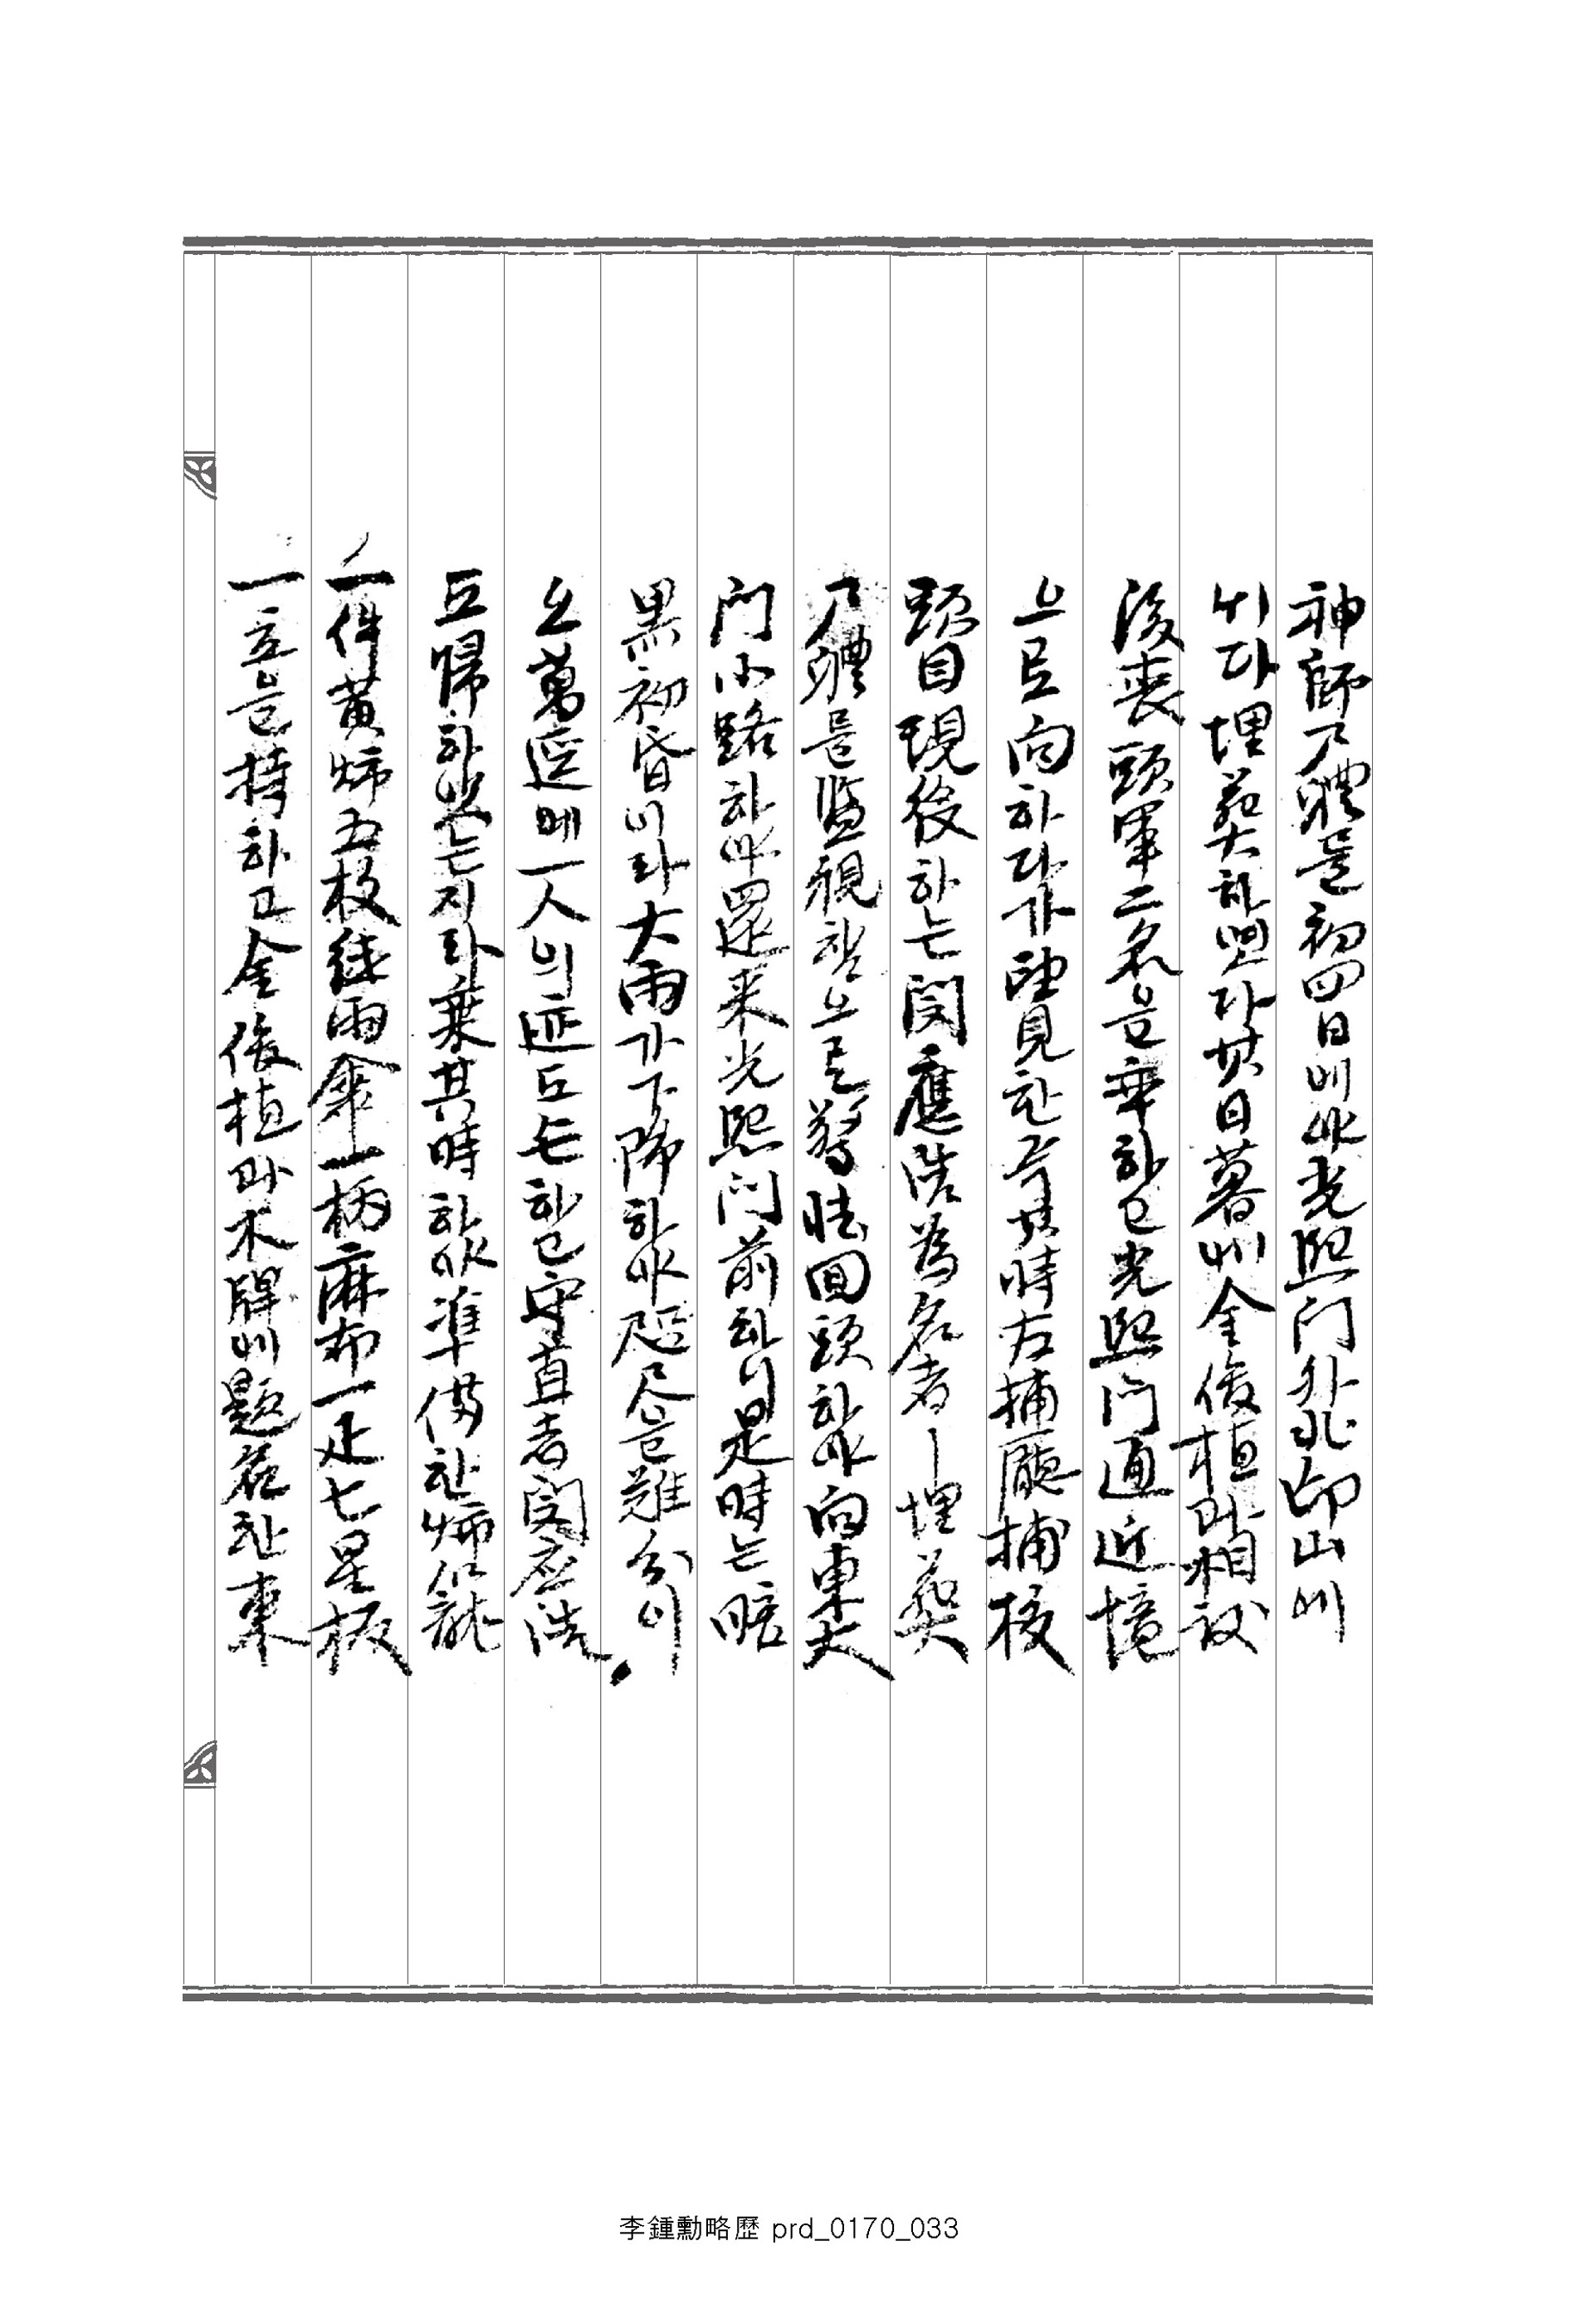 神師尸體를 初四日에야 光熙門外 北印山에
다 埋葬하엿다 其日暮에 金俊植과 相議
後 喪頭軍 二名을 率하고 光熙門 逼近境
으로 向하다가 望見한즉 其時 左捕廳 捕校
頭目 現役하는 閔應浩 爲名者ㅣ 埋葬
尸體를 監視함으로 驚怯回頭하야 向東大
門小路하야 還來 光熙門前하니 是時는 暗
黑初昏이라 大雨가 下降하야 咫尺을 難分이
요 萬逕에 一人의 迹도 無하고 守直者 閔應浩
도 歸하얏는지라 乘其時하야 準備한
一件 黃燭 五枝 紙雨傘 一柄 麻布 一疋 七星板
一立을 持하고 金俊植과 木牌에 題名한 東
李鍾勳略歷 prd_0170_033